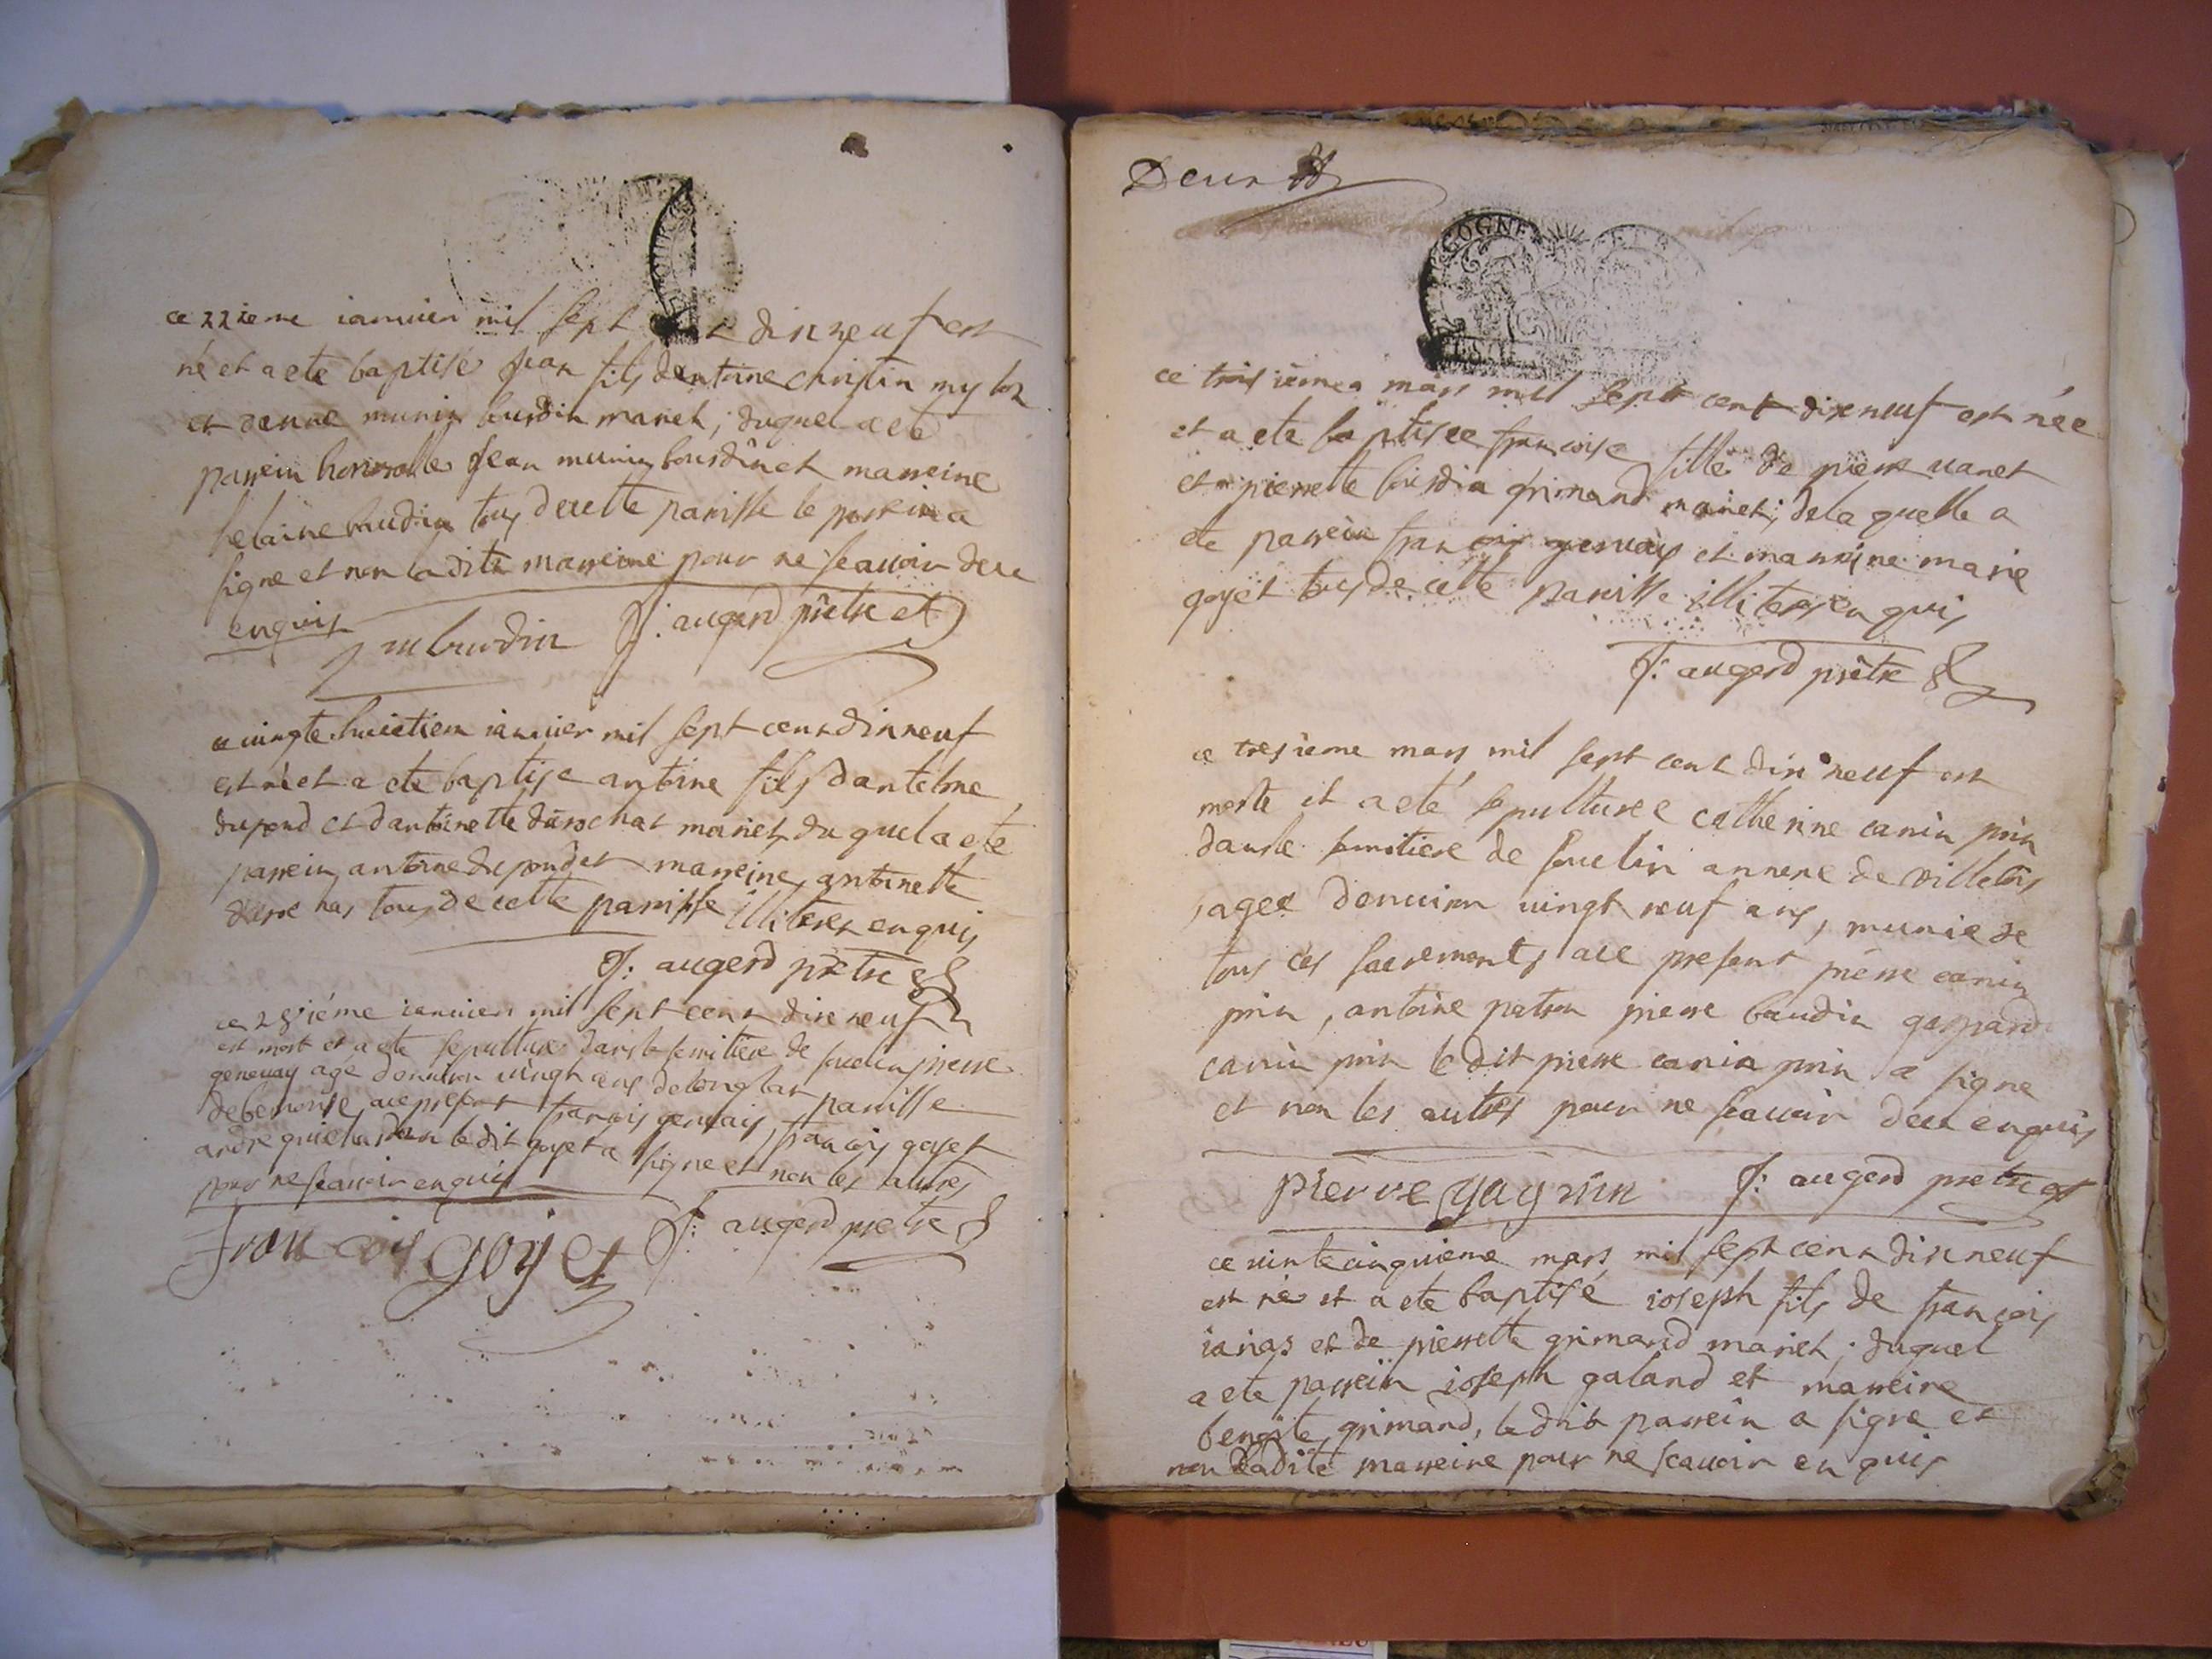 ce 22ieme ianuier mil sept dixneuf est
né et a ete baptisé Jean fils dantoine christin
et danne munin bourdin mariet; duquel a ete
parrein honorable Jean munin bourdin et marreine
helaine baudin tous decette parroisse le parrein a
signe et non la dite marreine pour ne scauoir dece
enquis
F: augerd prêtre
ce uingte huictiem ianuier mil sept cent dixneuf
est né et a ete baptise antoine fils dantelme
dupond et dantoinette durochat mariet duquel a ete
parrein antoine dupond et marreine antoinette
durochas tous de cette parroisse illiteres enquis
F: augerd prêtre
ce 28ieme ianuier mil sept cent dixneuf
est mort et a ete sepulture dans le semitiere de soucelin pierre
geneuay age denuiron uingt ans de parroisse
present francois geruais, francois goyet
andre le dit goyet a signe et non les autres
pour ne scauoir enquis
Francois goyet F: augerd prêtre
Deux
GOGNE
ce troisieme mars mil sept cent dixneuf est née
et a ete baptisee francoise fille de pierre uanet
et pierrette bourdin grimand mariet; de la quelle a
ete parrein francois geruais et marreine marie
goyet tous de cette parroisse illiteres enquis
F: augerd prêtre
ce tresieme mars mil sept cent dixneuf est
morte et a eté sepulturee catherine canin prin
dans le semitiere de soucelin annexe de
agee denuiron uingt neuf ans, munie de
tous ces sacrements present pierre canin
prin, antoine patron pierre baudin gaspard
canin prin le dit pierre canin prin a signe
et non les autres pour ne scauoir dece enquis
pierre F: augerd prêtre
ce uinte cinquieme mars mil sept cent dixneuf
est né et a ete baptisé ioseph fils de françois
ianas et de pierrette grimand mariet; duquel
a ete parrein ioseph galand et marreine
benoite grimand, le dit parrein a signe et
non ladite marreine pour ne scauoir enquis